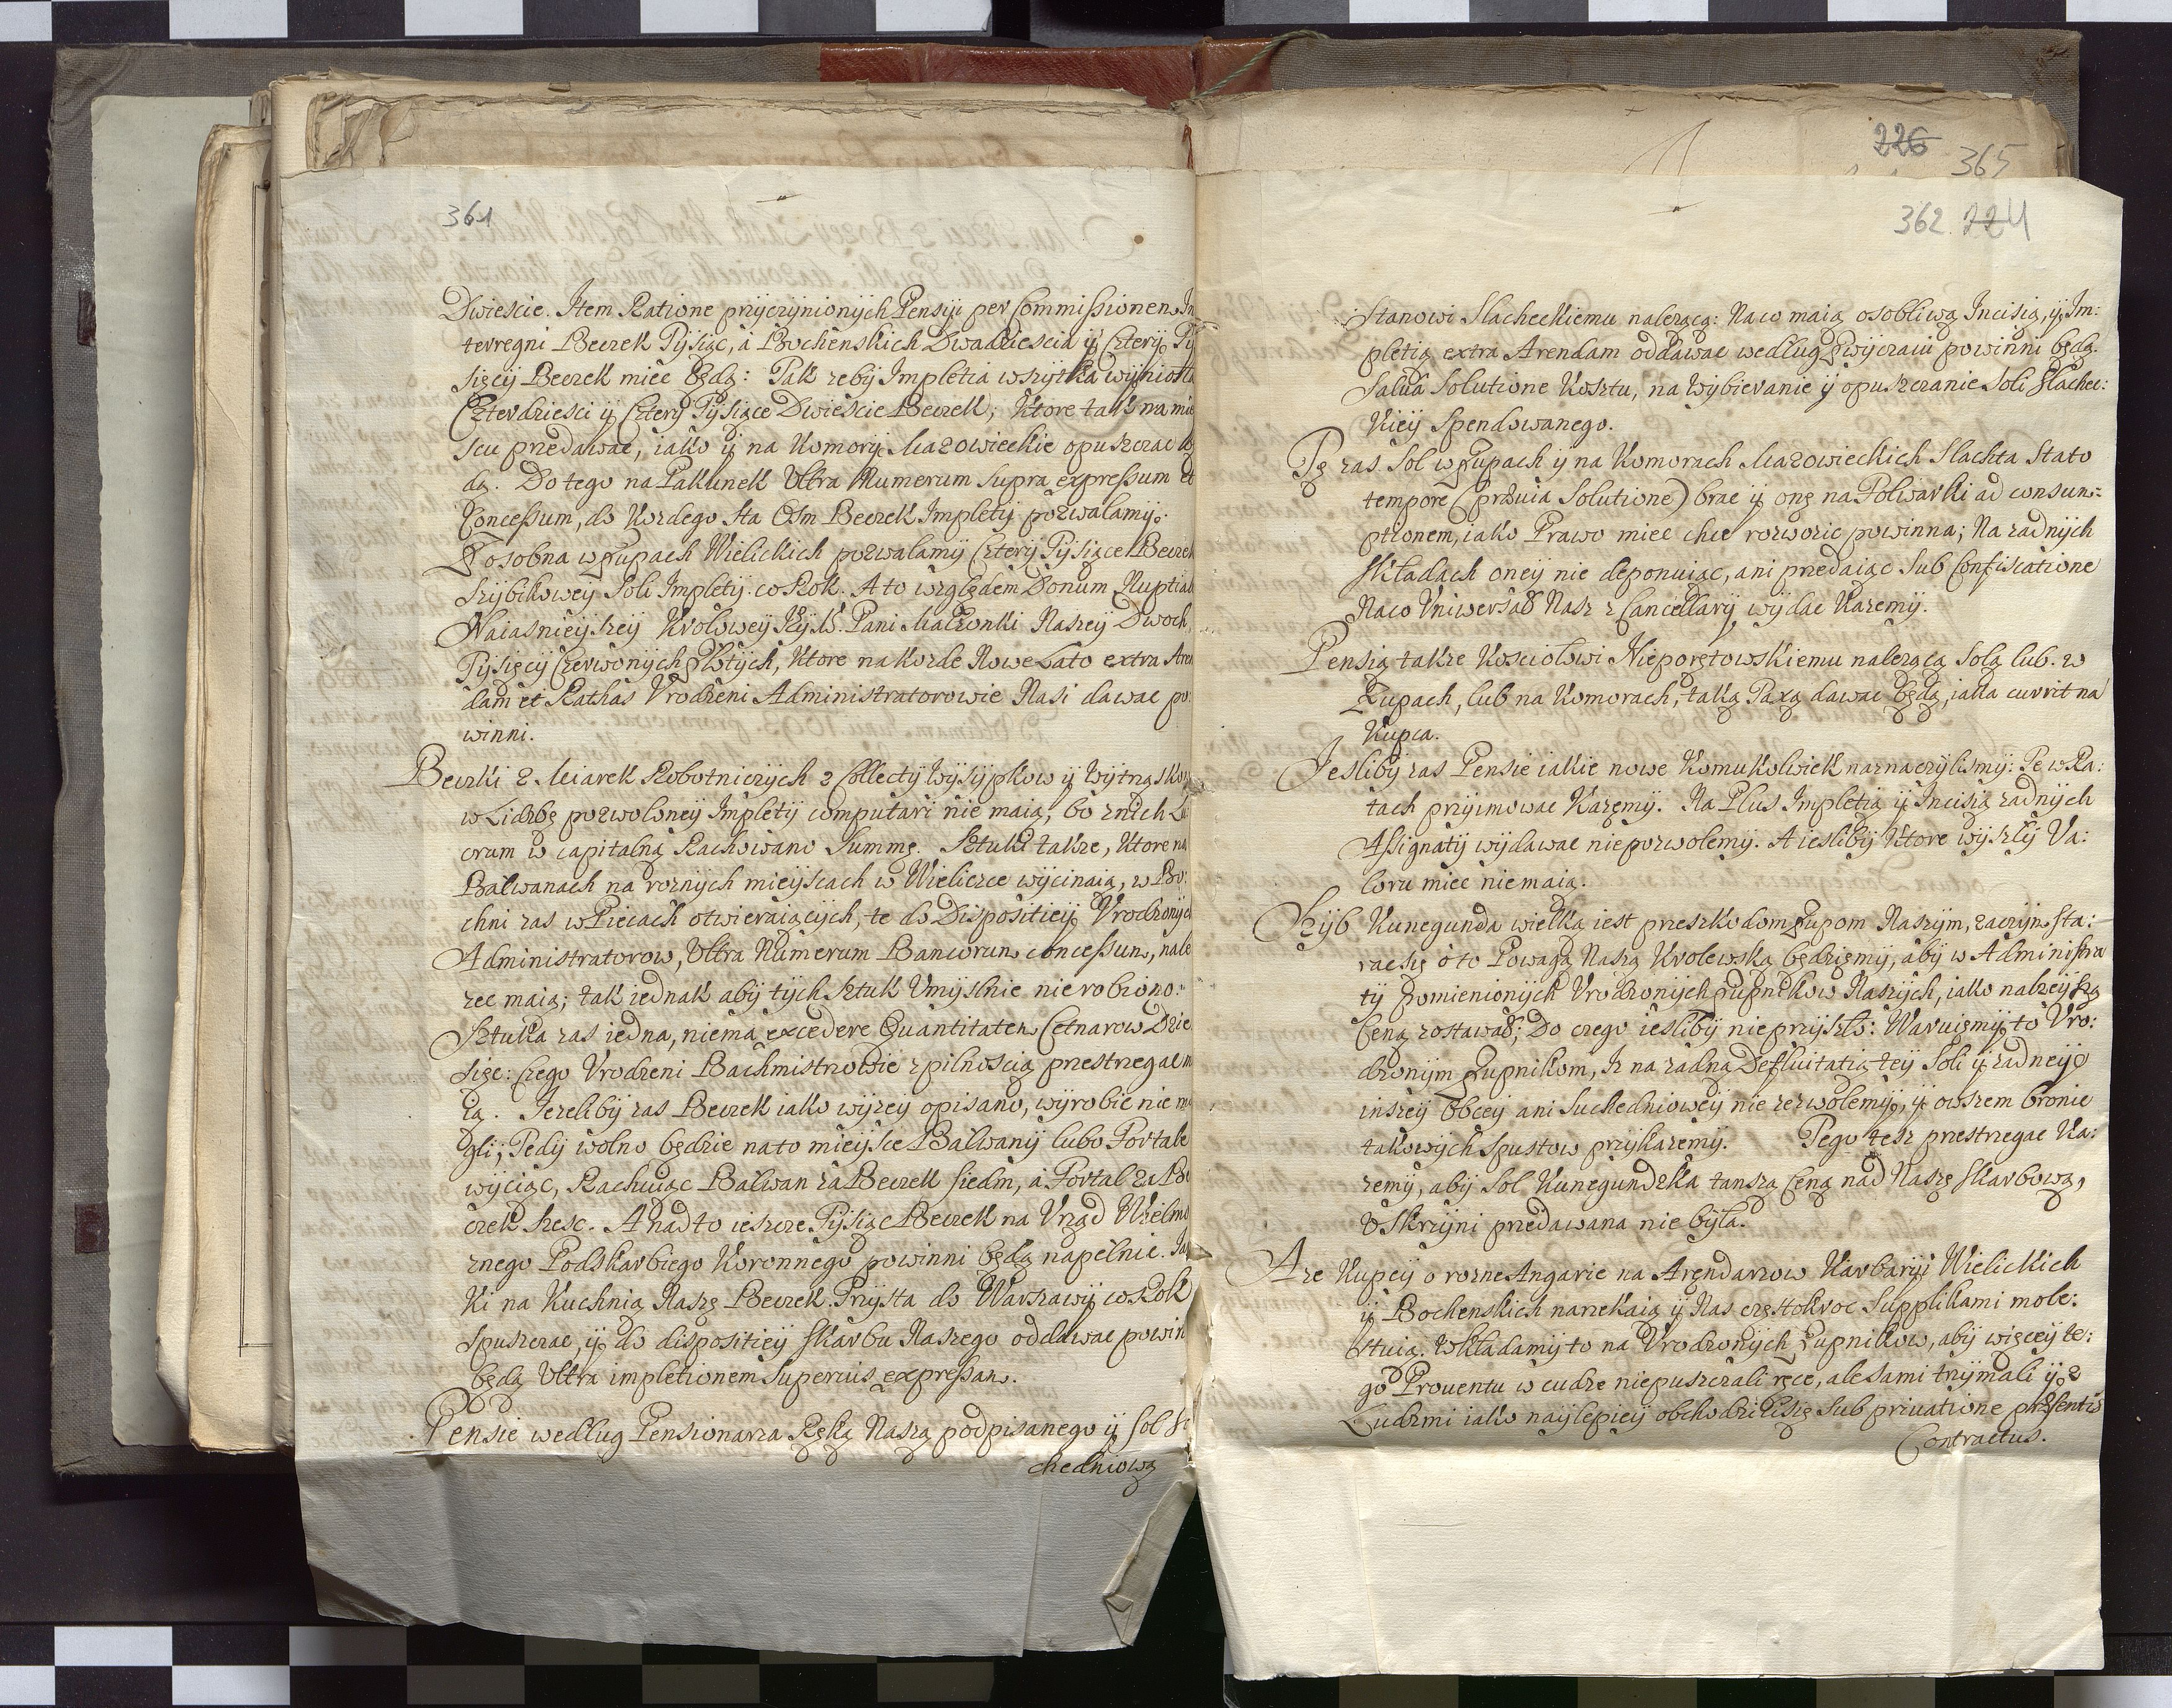 361
Dwiescie. Item Ratione przyczynionych Pensyi per Commissionem In
terregni Beczek Tysiąc, á Bochenskich Dwadziescia y Cztery Ty
sięcy Beczek miec będą: Tak zeby Impletia wszytka wyniosła
Czterdziesci y Cztery Tysiące Dwiescie Beczek; Ktore tak na miey
scu przedawac, iako y na Komory Mazowieckie opuszczac bę
dą. Do tego na Pakunek Ultra Numerum supra expressum et
Concessum, do Kozdego sta Osm Beczek Implety pozwalamy.
Z osobna w Zupach Wielickich pozwalamy Cztery Tysiące Beczek
Szybikowey Soli Implety co Rok. A to względem Donum Nuptiale
Naiasnieyszey Krolowey Jey M. Pani Małzonki Naszey Dwoch
Tysięcy Czerwonych Złotych, Ktore na Kozde Nowe Lato extra Aren
dam et Rathas Vrodzeni Administratorowie Nasi dawac po:
winni.
Beczki z Miarek Robotniczych z Collecty Wysypkow y Wytrząskow
w Liczbę pozwoloney Implety computari nie maią, bo z nich Lu
crum w capitalną Rachowano Summę. Sztuki takze, Ktore na
Bałwanach na roznych mieyscach w Wieliczce wycinaią, w Bo:
chni zas w Piecach otwieraiących, te do Dispositiey Vrodzonych
Administratorow, Ultra Numerum Bancorum concessum, nale
zec maią; tak iednak aby tych Sztuk Vmyslnie nie robiono:
Sztuka zas iedna, niema excedere Quantitatem Cetnarow Dzie
sięc: Czego Vrodzeni Bachmistrzowie z pilnoscią przestrzegac m
ią. Jezeliby zas Beczek iako wyzey opisano, wyrobic nie mo
gli; Tedy wolno będzie na to mieysce Bałwany lubo Fortale
wyciąc, Rachuiąc Bałwan za Beczek siedm, á Fortal za Be
czek szesc. A nad to ieszcze Tysiąc Beczek na Vrząd Wielmo
znego Podskarbiego Koronnego powinni będą napełnic. Ja
Ki na Kuchnią Naszę Beczek Trzysta do Warszawy co Rok
spuszczac, y do dispositiey skarbu Naszego oddawac powin
będą Ultra impletionem superius expressam.
Pensie według Pensionarza Ręką Naszą podpisanego y sol su
chedniową
226
365
362 224
Stanowi Slacheckiemu nalezącą: Na co maią osobliwą Incisią, y Im:
pletią extra Arendam oddawac według Zwyczaiu powinni będą.
Salvâ Solutione Kosztu, na Wybieranie y opuszczanie Soli slachec:
Kiey Spendowanego.
Tę zas Sol w Zupach y na Komorach Mazowieckich Slachta Stato
tempore (prævia Solutione) brac y onę na Folwarki ad consum:
ptionem, iako Prawo miec chce rozwozic powinna; Na zadnych
Składach oney nie deponuiąc, ani przedaiąc sub Confiscatione
Na co Vniwersał Nasz z Cancellary wydac Kazemy.
Pensią takze Kosciołowi Nieporętowskiemu nalezącą Solą lub w
Zupach, lub na Komorach, taką Taxą dawac będą, iaka currit na
Kupca.
Jesliby zas Pensie iakie nowe Komukolwiek naznaczylismy: Te w Ra:
tach przyimowac Kazemy. Na Plus Impletią y Incisią zadnych
Assignaty wydawac niepozwolemy. A iesliby Ktore wyszły Va:
loru miec niemaią.
Szyb Kunegunda wielką iest przeszkodom Zupom Naszym, zaczym sta:
racsię o to Powagą Naszą Krolewską będziemy, aby w Administra
ty pomienionych Vrodzonych Zupnikow Naszych, iako nalzeyszą
Ceną zostawał; Do czego iesliby nieprzyszło: Waruiemy to Vro:
dzonym Zupnikom, Iz na zadną Defluitatią tey Soli y zadney
inszey Obcey ani Suchedniowey nie zezwolemy, y owszem bronic
takowych spustow przykazemy. Tego tesz przestrzegac Ka:
zemy, aby Sol Kunegundzka tanszą Ceną nad Naszę skarbową,
v Skrzyni przedawana nie była.
A ze Kupcy o rozne Angarie na Arendarzow Karbaryi Wielickich
y Bochenskich narzekaią y Nas częstokroc Supplikami mole:
stuią. Wkładamy to na Vrodzonych Zupnikow, aby więcey te:
go Prouentu w cudze niepuszczali ręce, ale sami trzymali y z
Ludzmi iako naylepiey obchodzilisię sub priuatione præsentis
Contractus.